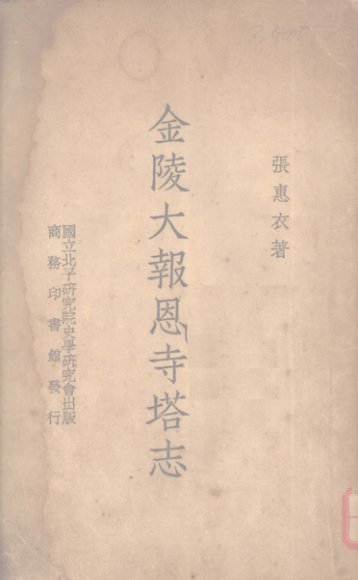 張惠衣著
金陵大報恩寺塔志
國立北平研究院史學研究會出版
商務印書館發行